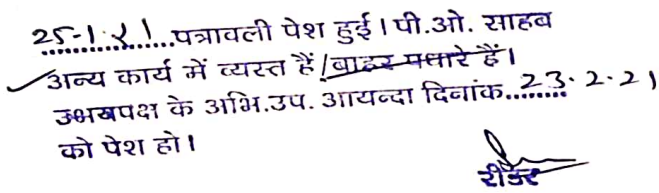 25-1-21....पत्रावली पेश हुई। पी.ओ. साहब
अन्य कार्य में व्यस्त हैं/बाहर पधारे हैं।
उभयपक्ष के अभि.उप. आयन्दा दिनांक........23.2.21
को पेश हो।
रीडर